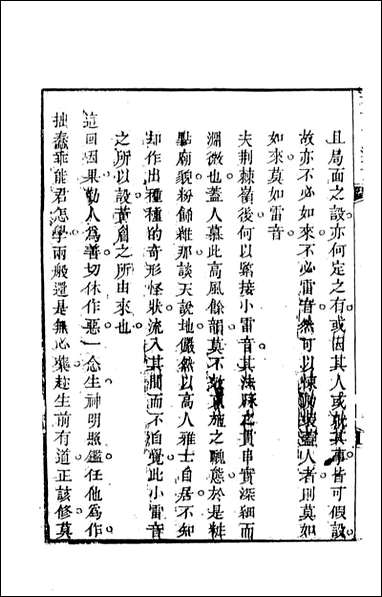 且局面之設亦何定之有或因其人或就其事皆可假設
故亦不必如來不必雷音然可以悚動裝蠢人者則莫如
如來莫如雷音
夫荆棘嶺後何以緊接小雷音其法脉之貫串實深細而
淵微也蓋人慕此高風餘韻莫不效施之醜態於是粧
點廟貌粉飾雜那談天說地儼然以高人雅士自居不知
却作出種種的奇形怪狀流入其間而不自覺此小雷音
之所以設黄眉之所由來也
這回因果勸人為善切休作惡一念生神明照鑑任他為作
拙蠢乖能君怎學兩般還是無心藥趂生前有道正該修莫